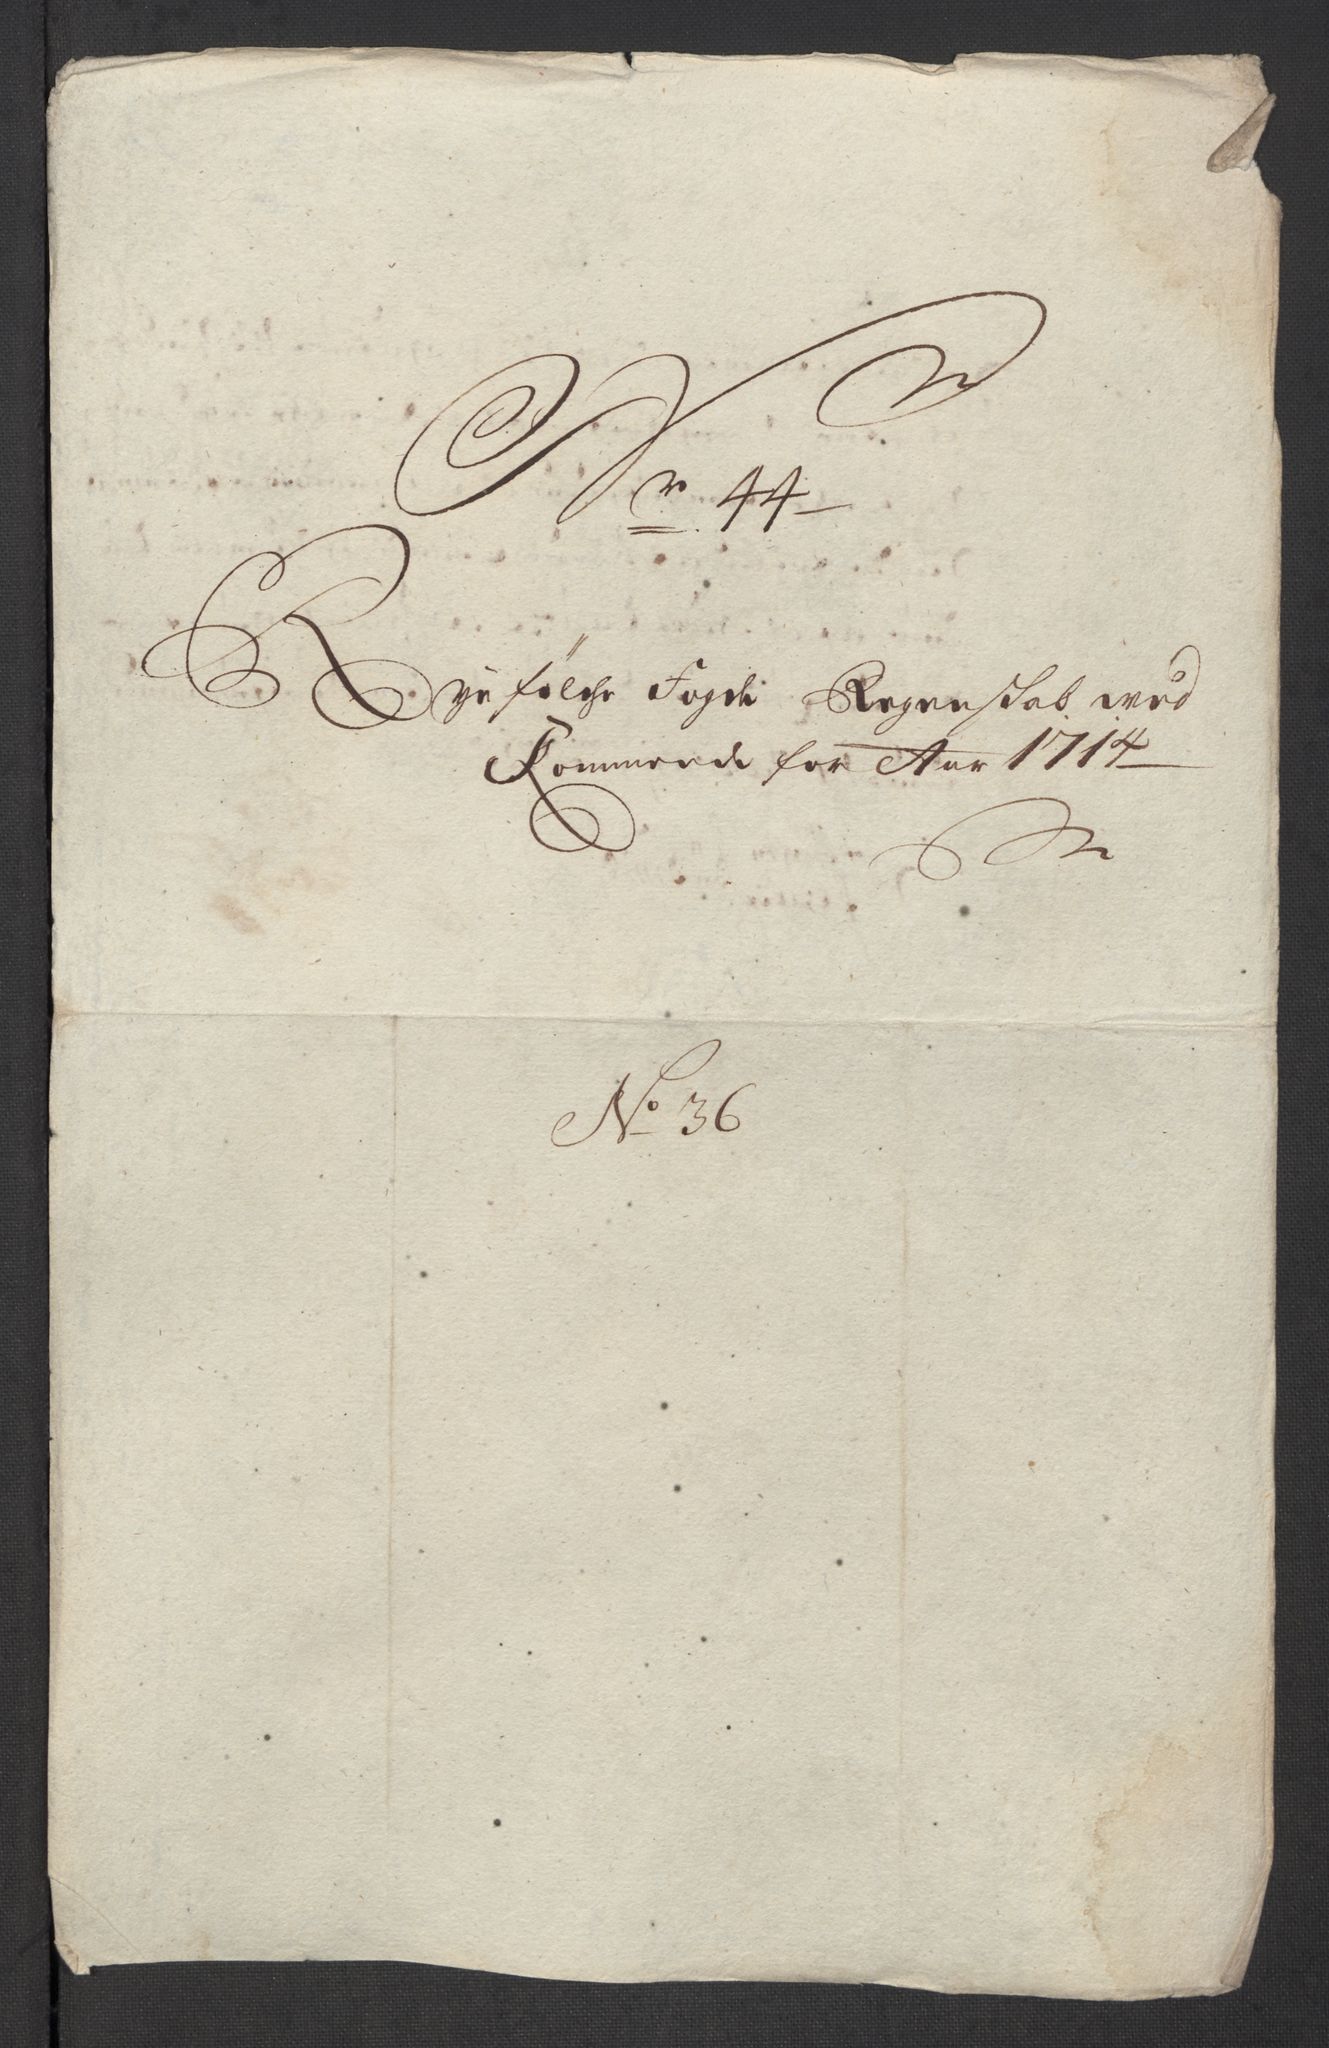 Nr. 44
Ryefølche Fogdi Regenskab wed
Kommende for Aar 1714
No 36